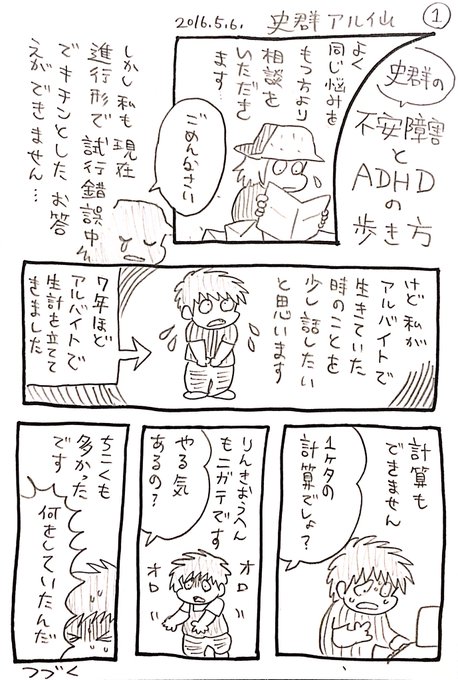 2016.5.6. 史群アル仙 ①
史群の
不安障害
と
ADHD
の
歩き方
よく
同じ悩みを
もつ方より
相談を
いただき
ます
ごめんなさい
しかし私も現在
進行形で試行錯誤中
でキチンとしたお答
えができません…
けど私が
アルバイトで
生きていた
時のことを
少し話したい
と思います
7年ほど
アルバイトで
生計を立てて
きました
計算も
できません
1ケタの
計算でしょ?
りんきおうへん
もニガテです
やる気
あるの?
オロ
オロ
ちこくも
多かった
です
何をしていたんだ
つづく